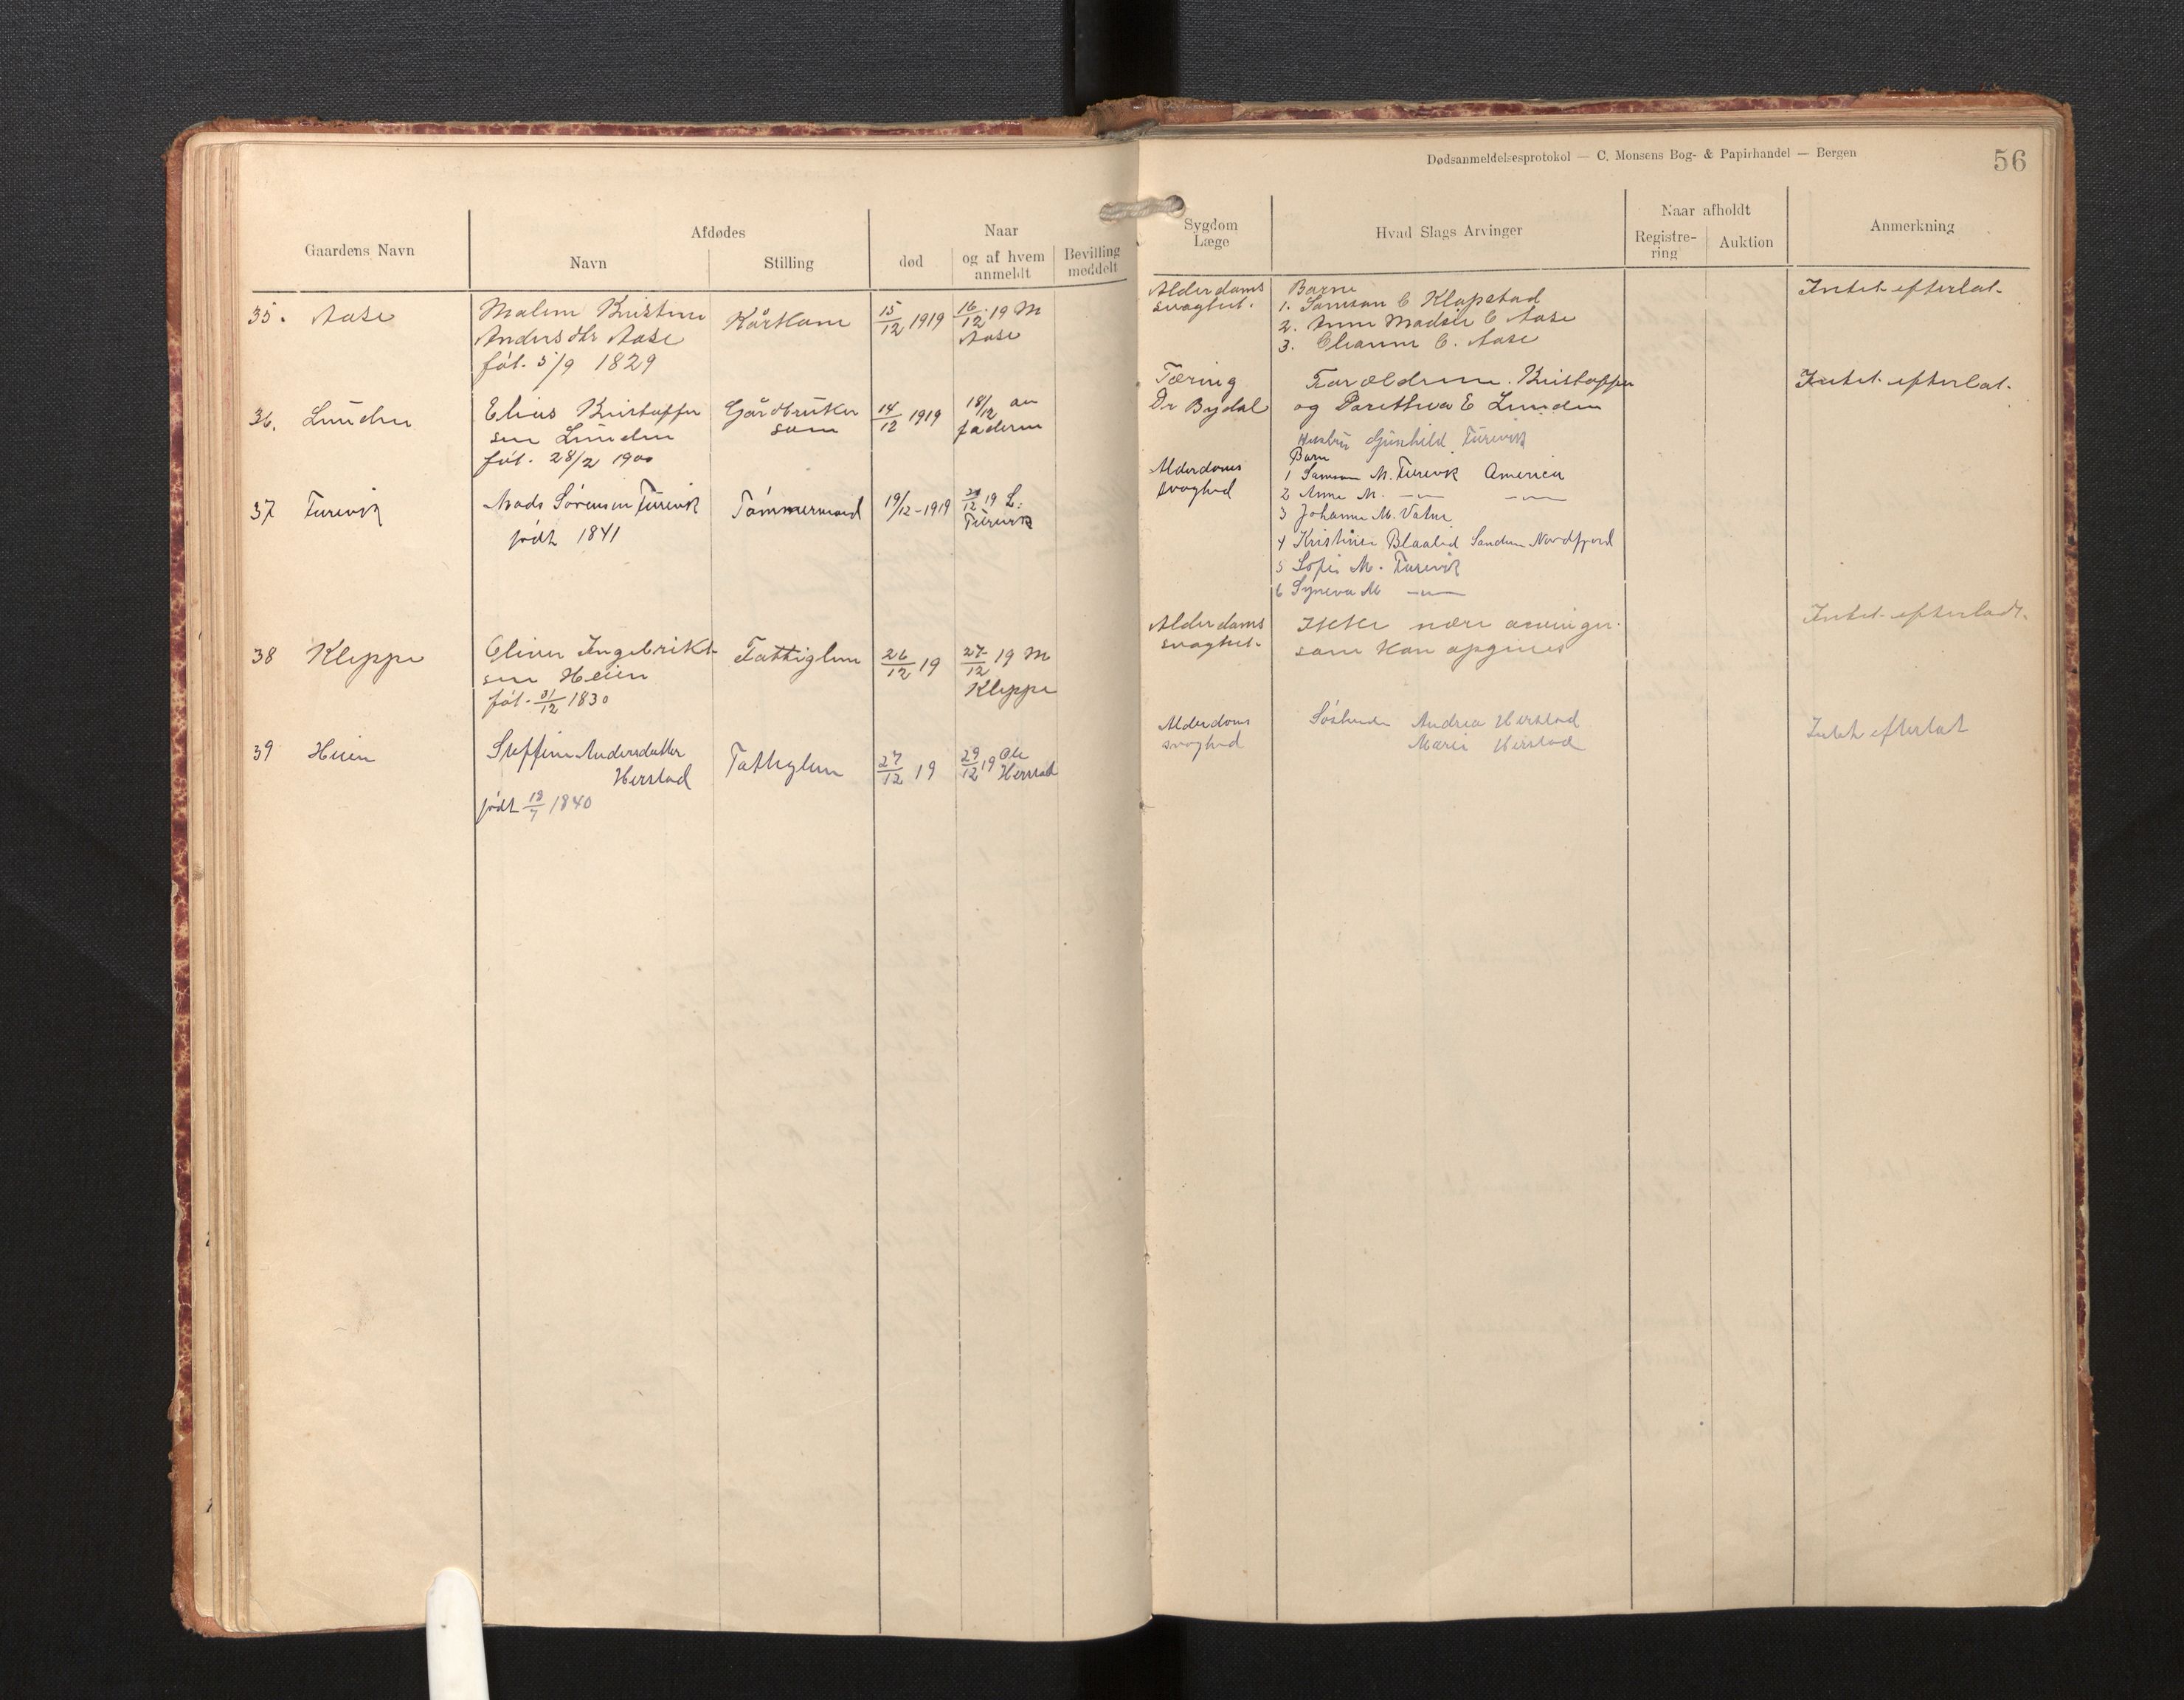 Dødsanmeldelsesprotokol — C. Monsens Bog- & Papirhandel — Bergen
56
Gaardens Navn
Afdødes
Navn
Stilling
Naar
død
og af hvem anmeldt
Bevilling meddelt
Sygdom
Læge
Hvad Slags Arvinger
Naar afholdt
Registre-
ring
Auktion
Anmerkning
35. Aase
Malene Kristine
Andersdtr Aase
føt. 5/9 1829
Kårkone
15/12 1919
16/12 19 M
Aase
Alderdoms
svaghet.
Barne
1. Samson C Klopstad
2. Anne Madsie C Aase
3. Elianne C. Aase
Intet efterlat.
36. Lunden
Elias Kristoffer
sen Lunden
føt. 28/2 1900
Gårdbruker
søn
14/12 1919
18/12 av
faderen
Tæring
Dr Bydal
Forældrene. Kristoffer
og Dorethea E Lunden
Intet efterlat.
37 Turevik
Mads Sørensen Turevik
født 1841
Tømmermand
19/12-1919
/12 19 L.
Turevik
Alderdoms
svaghed
Hustru Gunhild Turevik
Barn
1 Samson M. Turevik America
2 Anne M. —"— —"—
3 Johanne M. Vatne
4 Kristine Blaalid Sandene Nordfjord
5 Sofie M. Turevik
6 Syneva M —"—
38 Kleppe
Oliver Ingebrikt-
sen Heien
føt. 31/12 1830
Fattiglem
26/12 19
27/12 19 M
Kleppe
Alderdoms
svaghet.
Ikke nære arvinger.
som kan opgives
Intet efterladt.
39 Heien
Steffine Andersdatter
Herstad
født 18/7 1840
Fattiglem
27/12 19
29/12 19 Ole
Herstad
Alderdoms
svaghed
Søskende Andrea Herstad
Marie Herstad
Intet efterlat